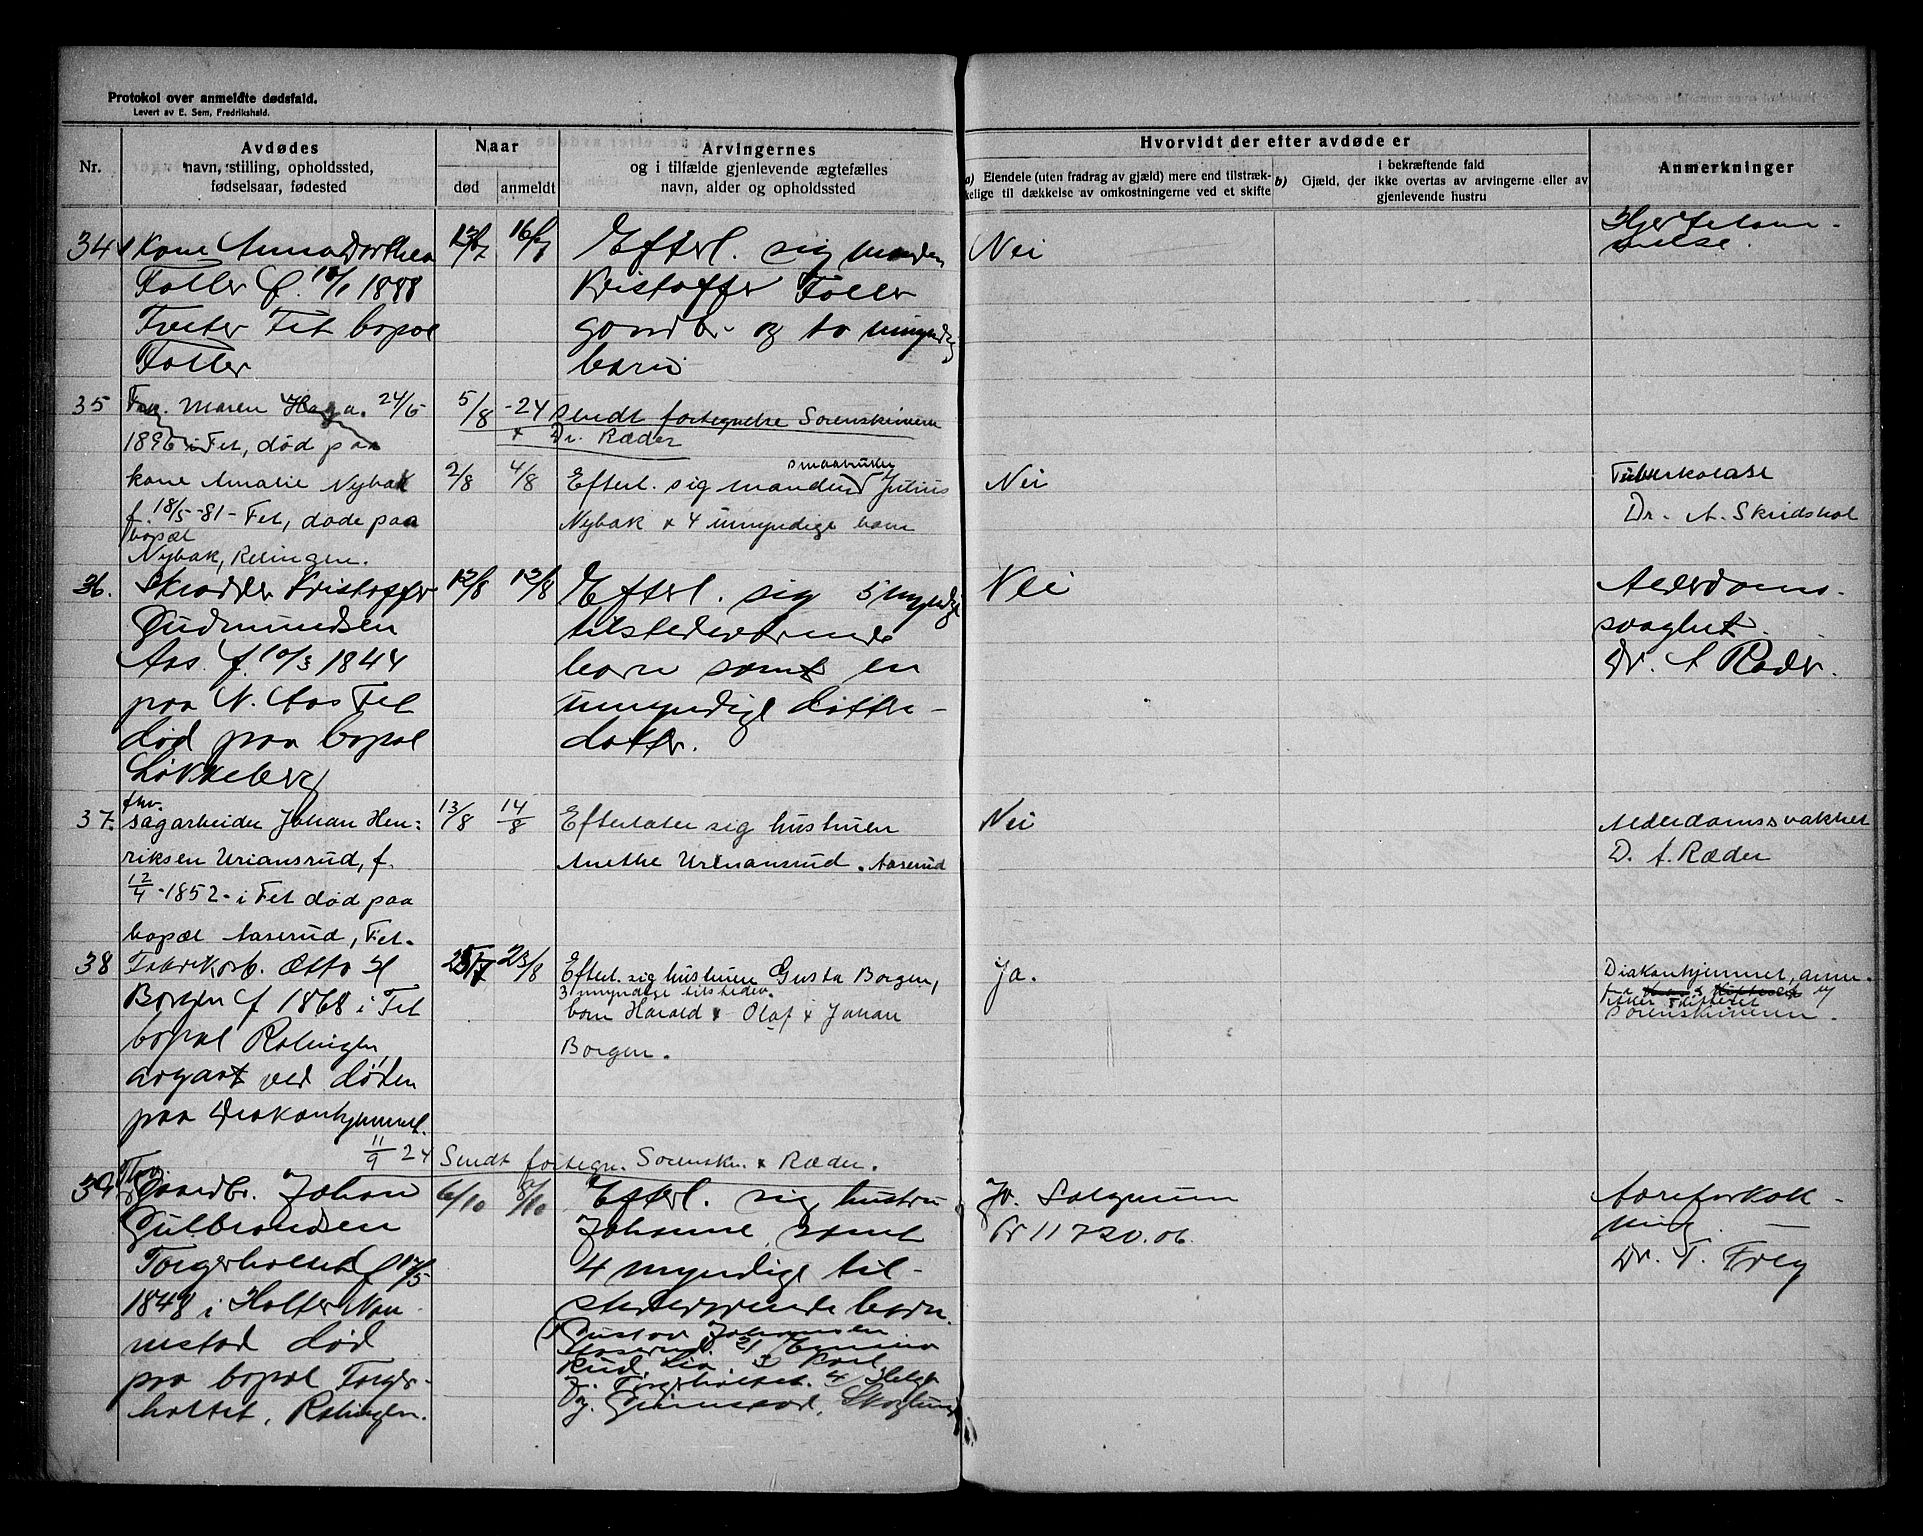 Protokol over anmeldte dødsfald.
Levert av E. Sem, Fredrikshald.
Nr.
Avdødes
navn, stilling, opholdssted,
fødselsaar, fødested
Naar
død
anmeldt
Arvingernes
og i tilfælde gjenlevende ægtefælles
navn, alder og opholdssted
Hvorvidt der efter avdøde er
a) Eiendele (uten fradrag av gjæld) mere end tilstræk-
kelige til dækkelse av omkostningerne ved et skifte
b) Gjæld, der
i bekræftende fald
ikke overtas av arvingerne eller av
gjenlevende hustru
Anmerkninger
34
Kone Anna Dorthea
Faller f. 1888
Tveter Fet bopæl
Faller
16/7
Efterl. sig manden
Kristoffer Faller
gaardbr. og to umyndig
barn
Nei
35
Maren 24/5
1896 i Fet, død paa
5/8 -24 sendt fortegnelse Sorenskriveren
+ Dr. Ræder
kone Amalie Nybak
f. 18/5-81- Fet, døde paa
bopæl
Nybak, Relingen.
2/8
4/8
smaabruker
Efterl. sig manden Julius
Nybak + 4 umyndige barn
Nei
Tuberkolose
Dr. A. Skridshol
36.
Skrædder Kristoffer
Gudmundsen
Aas. f. 10/3 1844
paa N. Aas Fet
død paa bopæl
Løkkeberg
12/8
12/8
Efterl. sig 5 myndige
tilstedeværende
barn samt en
umyndige datter-
datter.
Nei
Alderdoms-
svaghet.
Dr. A Ræder.
37.
fhv.
sagarbeider Johan Hen-
riksen Uriansrud, f.
12/4-1852- i Fet død paa
bopæl Aaserud, Fet.
13/8
14/8
Efterlater sig hustruen
Anethe Uriansrud. Aaserud
Nei
Alderdomssvakhet
D. A. Ræder
38
Fabrikarb. Otto H
Borgen f 1868 i Fet
bopæl Rælingen,
avgaat ved døden
paa Diakonhjemmet.
23/8
Efterl. sig hustruen Gusta Borgen,
3 umyndige tilstedev.
barn Harald + Olaf + Johan
Borgen.
Ja.
Diakonhjemmet,
Sorenskriveren.
11/9 24 Sendt fortegn. Sorenskr. + Ræder.
39.
Fhv.
Gaardbr. Johan
Gulbrandsen
Torgerholtet f
1848 i Holter Nan-
nestad død
paa bopæl Torger-
holtet, Rælingen.
6/10
8/10
Efterl. sig hustru
Johanne, samt
4 myndige til-
stedeværende barn.
(Gustav Johansen
2) Emma
Rud, Lia. 3 Karl
J. Torgerholtet. 4 Helga
Skoglund
Ja. Salgssum
Kr 11 720.06.
Aareforkalk-
ning. —
Dr. T. Frey